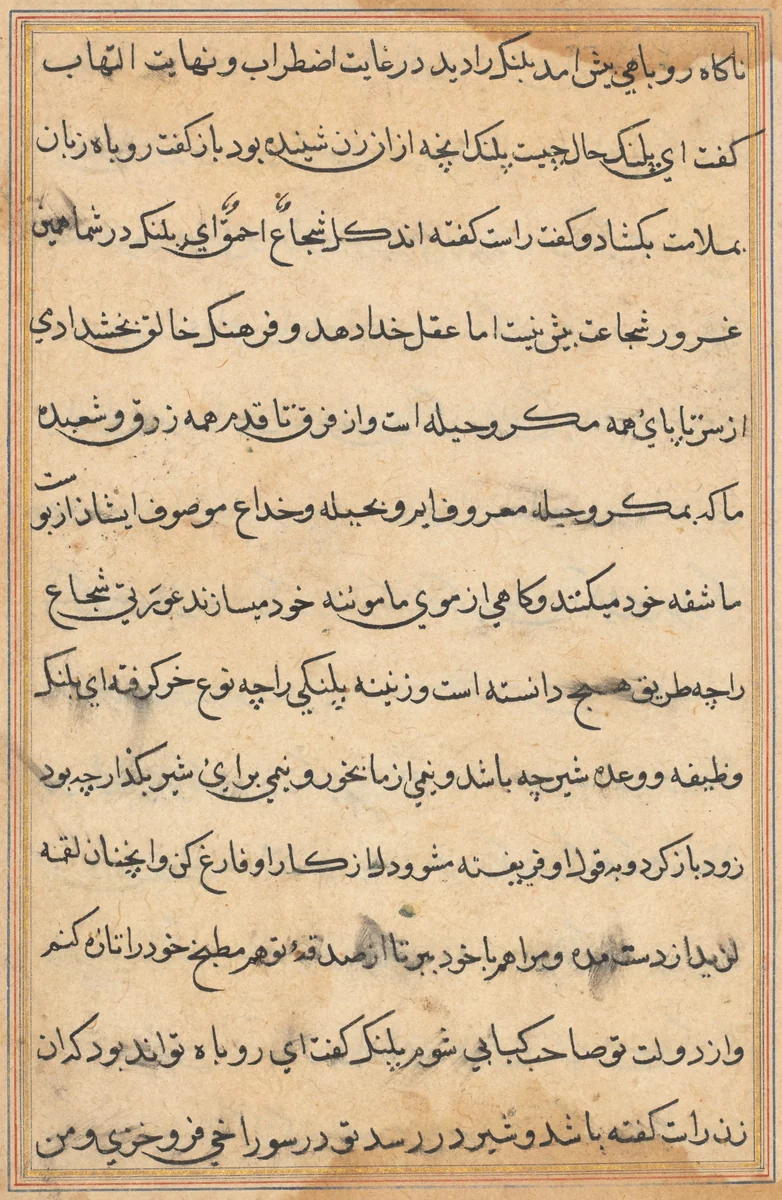 ناکاه روباهي پیش امد پلنک را دید در غایت اضطراب و نهایت التهاب
کفت اي پلنک حال چیست پلنک انچه از ان زن شینده بود باز کفت روباه زبان
بملامت بکشاد و کفت راست کفته اند کل شجاع احمق اي پلنک در شما همین
غرور شجاعت بیش نیست اما عقل خدا دهد و فرهنک خالق بخشد ادي
از سر تا پاي همه مکر و حیله است و از فرق تا قدم همه زرق و شعبده
ما که بمکر و حیله معروفایم و بحیله و خداع موصوف ایشان از پوست
ما شقه خود میکنند و کاهي از موي ما موئنه خود میسازند عورتي شجاع
را چه طریق هیچ دانسته است و زنینه پلنکي را چه نوع خر کرفته اي پلنک
وظیفه و وعده شیر چه باشد و نیمي از ما بخور و نیمي براي شیر بکذار چه بود
زود باز کرد و به قول او فریفته مشو و دل از کار او فارغ کن و اینچنان لقمه
لذیذ از دست مده و مرا هم با خود ببر تا از صدقه تو هم مطبخ خود را تازه کنم
و از دولت تو صاحب کبابي شوم پلنک کفت اي روباه تواند بود که ان
زن راست کفته باشد و شیر در رسد تو در سوراخي فرو خزي و من